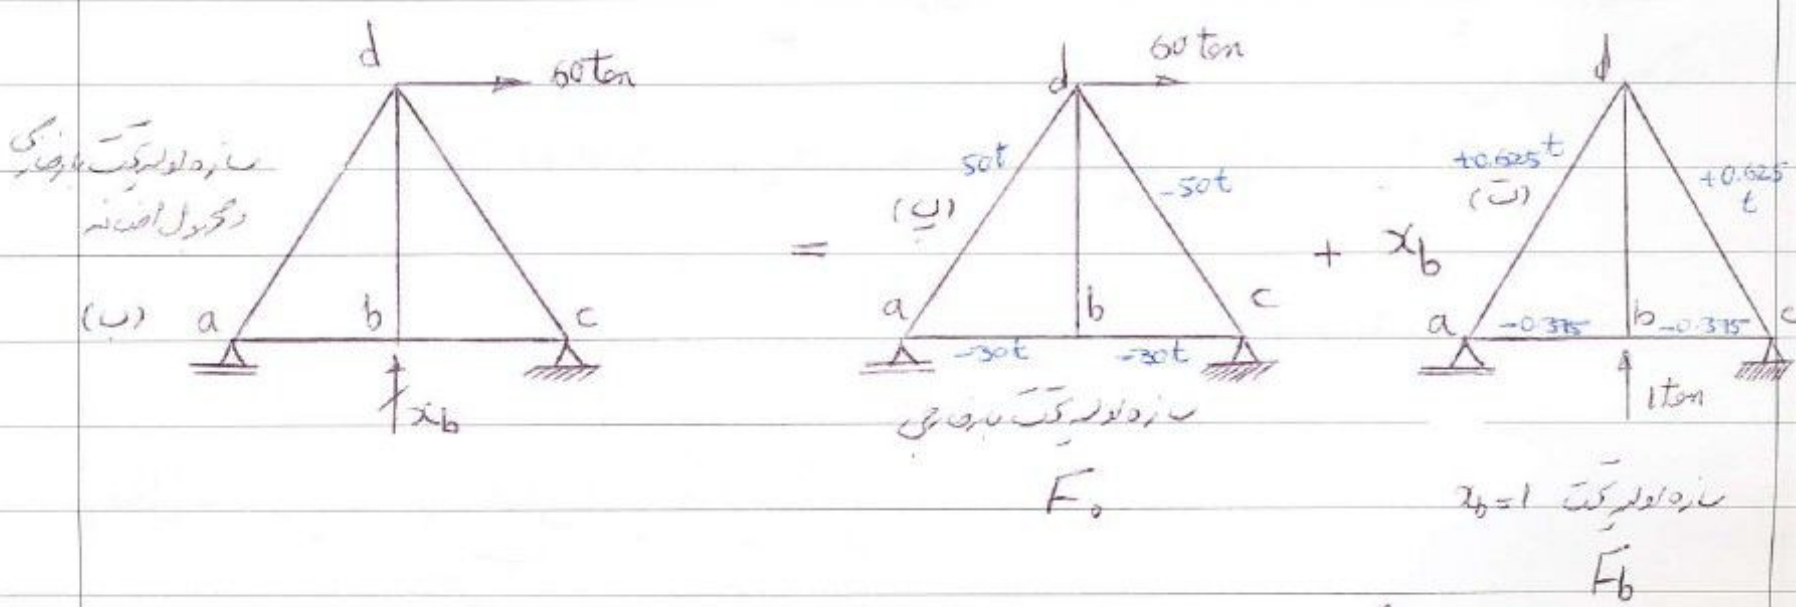 d
60 ton
سازه اولیه تحت بار خارجی
و مجهول اضافه
(ب)
a
b
c
x_b
=
d
60 ton
50t
-50t
(پ)
a
b
c
-30t
-30t
سازه اولیه تحت بار خارجی
F₀
+ x_b
d
+0.625t
(ت)
+0.625
t
a
b
c
-0.375
-0.375
1 ton
سازه اولیه تحت x_b=1
F_b